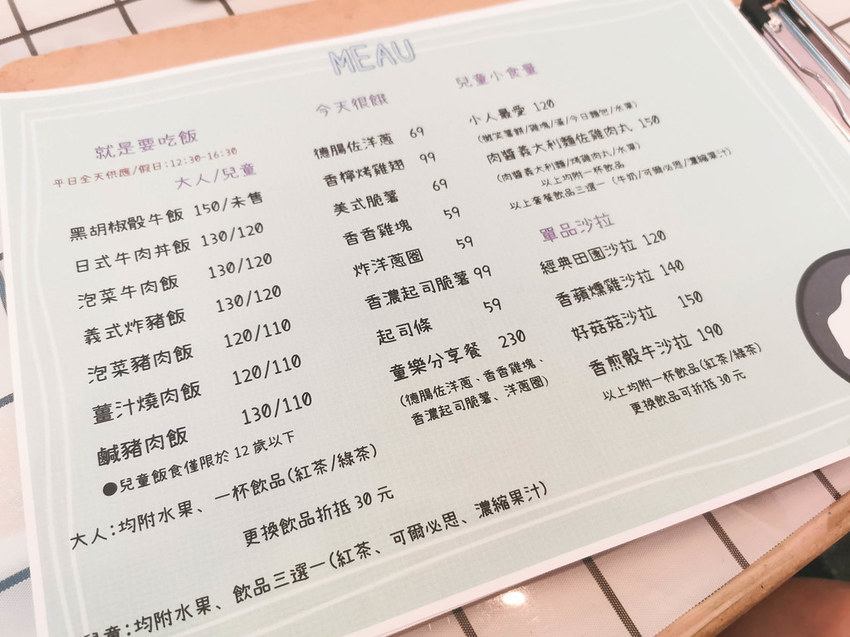 MEAU
就是要吃飯
平日全天供應/假日:12:30-16:30
大人/兒童
黑胡椒骰牛飯 150/未售
日式牛肉丼飯 130/120
泡菜牛肉飯 130/120
義式炸豬飯 130/120
泡菜豬肉飯 120/110
薑汁燒肉飯 120/110
鹹豬肉飯 130/110
●兒童飯食僅限於 12 歲以下
大人:均附水果、一杯飲品(紅茶/綠茶)
更換飲品折抵 30 元
兒童:均附水果、飲品三選一(紅茶、可爾必思、濃縮果汁)
今天很餓
德腸佐洋蔥 69
香檸烤雞翅 99
美式脆薯 69
香香雞塊 59
炸洋蔥圈 59
香濃起司脆薯 99
起司條 59
童樂分享餐 230
(德腸佐洋蔥、香香雞塊、
香濃起司脆薯、洋蔥圈)
兒童小食量
小人最愛 120
(微笑薯餅/雞塊/蛋/今日麵包/水果)
肉醬義大利麵佐雞肉丸 150
(肉醬義大利麵/烤雞肉丸/水果)
以上均附一杯飲品
以上套餐飲品三選一 (牛奶/可爾必思/濃縮果汁)
單品沙拉
經典田園沙拉 120
香蘋燻雞沙拉 140
好菇菇沙拉 150
香煎骰牛沙拉 190
以上均附一杯飲品(紅茶/綠茶)
更換飲品可折抵 30 元